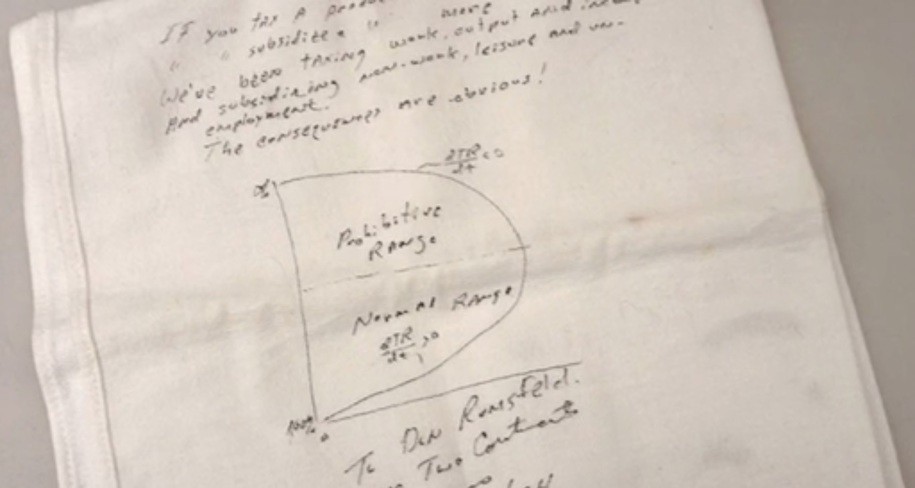 IF you tax a produ
" " subsidize " " more
We've been taxing work, output and
And subsidizing non-work, leisure and un-
employment.
The consequences are obvious!
dTR/dt < 0
0%
Prohibitive
Range
Normal Range
dTR/dt > 0
100%
0
To Don Rumsfeld.
Two Continents